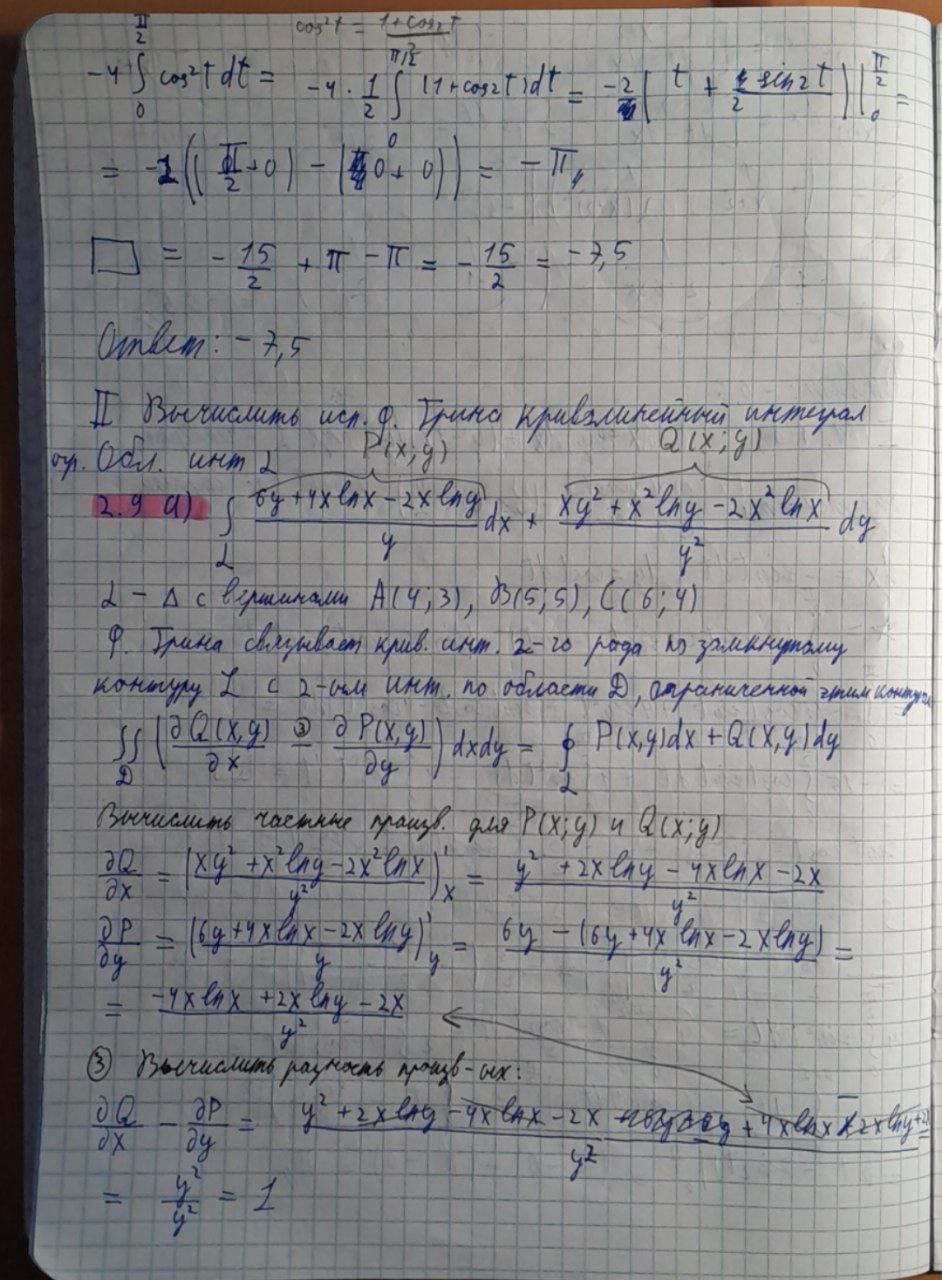 cos²t = (1+cos2t)/2
-4 ∫₀^(π/2) cos²t dt = -4 · 1/2 ∫₀^(π/2) (1+cos2t)dt = -2 ( t + sin2t/2 ) |₀^(π/2) =
= -2 (( π/2 + 0) - (0 + 0)) = -π,
□ = - 15/2 + π - π = - 15/2 = -7,5
Ответ: -7,5
II Вычислить исп. ф. Грина криволинейный интеграл
P(x;y) Q(x;y)
Обл. инт L
2.9 а) ∫_L (6y+4xlnx-2xlny)/y dx + (xy²+x²lny-2x²lnx)/y² dy
L - Δ с вершинами A(4;3), B(5;5), C(6;4)
Ф. Грина связывает крив. инт. 2-го рода по замкнутому
контуру L с 2-ым инт. по области D, ограниченной этим контуром
∬_D (∂Q(x,y)/∂x ③ - ∂P(x,y)/∂y) dxdy = ∮_L P(x,y)dx + Q(x,y)dy
Вычислить частные произв. для P(x;y) и Q(x;y)
∂Q/∂x = ((xy²+x²lny-2x²lnx)/y²)'ₓ = (y²+2xlny-4xlnx-2x)/y²
∂P/∂y = ((6y+4xlnx-2xlny)/y)'_y = (6y-(6y+4xlnx-2xlny))/y² =
= (-4xlnx+2xlny-2x)/y²
③ Вычислить разность произв-ых:
∂Q/∂x - ∂P/∂y = (y²+2xlny-4xlnx-2x +4xlnx-2xlny+2x)/y²
= y²/y² = 1